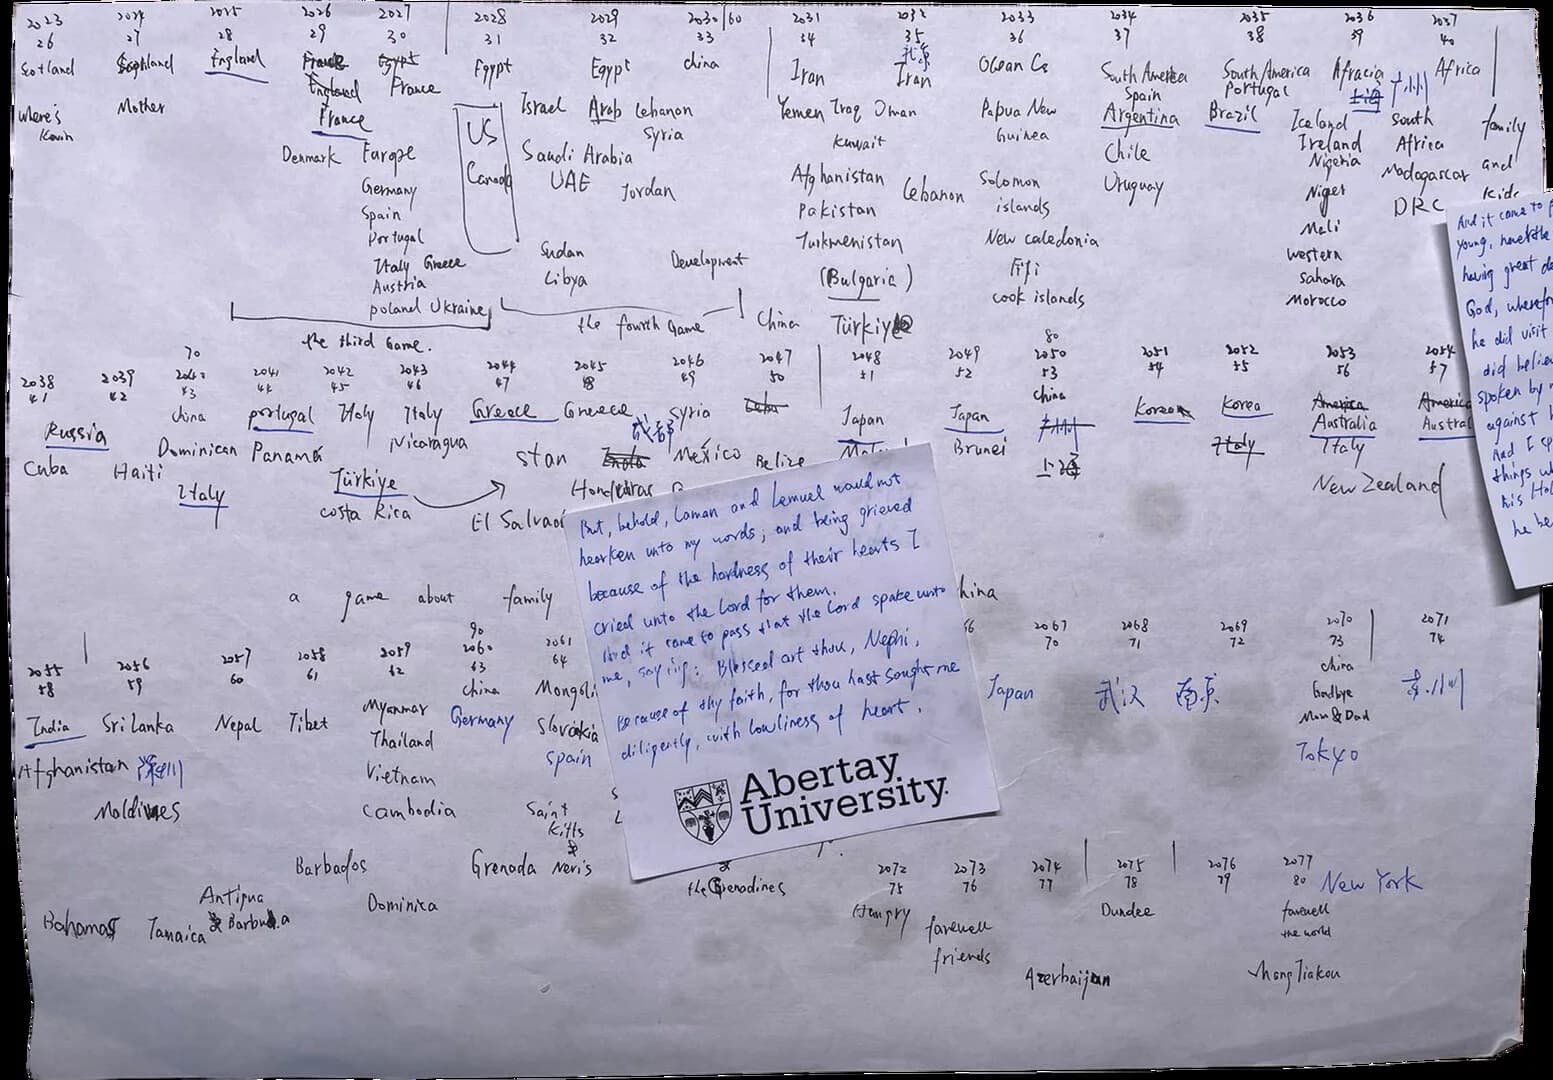 2023 2024 2025 2026 2027 2028 2029 2030/60 2031 2032 2033 2034 2035 2036 2037
26 27 28 29 30 31 32 33 34 35 36 37 38 39 40
Scotland Scotland England France Egypt Egypt Egypt China Iran Iran Ocean Cs South America South America Africa Africa
England France Spain Portugal
where's Kevin Mother France US Israel Arab Lebanon Yemen Iraq Oman Papua New Guinea Argentina Brazil Iceland South Africa family
Syria Kuwait Ireland
Denmark Europe Canada Saudi Arabia Afghanistan Lebanon Solomon islands Chile Nigeria Madagascar and
Germany UAE Jordan Pakistan Uruguay Niger DRC kids
Spain Mali
Portugal Sudan Development Turkmenistan New Caledonia western sahara
Italy Greece Libya (Bulgaria) Fiji Morocco
Austria cook islands
poland Ukraine the fourth Game China Türkiye
the third Game.
70 80
2038 2039 2040 2041 2042 2043 2044 2045 2046 2047 2048 2049 2050 2051 2052 2053 2054
41 42 43 44 45 46 47 48 49 50 51 52 53 54 55 56 57
Russia China portugal Italy Italy Greece Greece Syria Cuba Japan Japan China Korea Korea America America
成都 广州 Australia
Cuba Haiti Dominican Panama Nicaragua stan India Mexico Belize Brunei 上海 Italy Italy
Italy Türkiye Honduras New Zealand
costa Rica El Salvador
a game about family China
90
2055 2056 2057 2058 2059 2060 2061 2067 2068 2069 2070 2071
58 59 60 61 62 63 64 70 71 72 73 74
India Sri Lanka Nepal Tibet Myanmar China Japan 武汉 南京 China
Thailand Germany Slovakia Goodbye
Afghanistan 深圳 Vietnam Spain Mom & Dad
Maldives Cambodia Saint Kitts & Nevis Tokyo
Barbados Grenada the Grenadines
2072 2073 2074 2075 2076 2077
75 76 77 78 79 80 New York
Bahamas Jamaica Antigua & Barbuda Dominica Hungry farewell friends Dundee farewell the world
Azerbaijan ZhangJiakou
But, behold, Laman and Lemuel would not
hearken unto my words; and being grieved
because of the hardness of their hearts I
cried unto the Lord for them.
And it came to pass that the Lord spake unto
me, saying: Blessed art thou, Nephi,
because of thy faith, for thou hast sought me
diligently, with lowliness of heart.
Abertay
University
And it came to
young, nevertheless
having great
God, wherefore
he did visit
did believe
spoken by
against
And I
things
his Holy
he